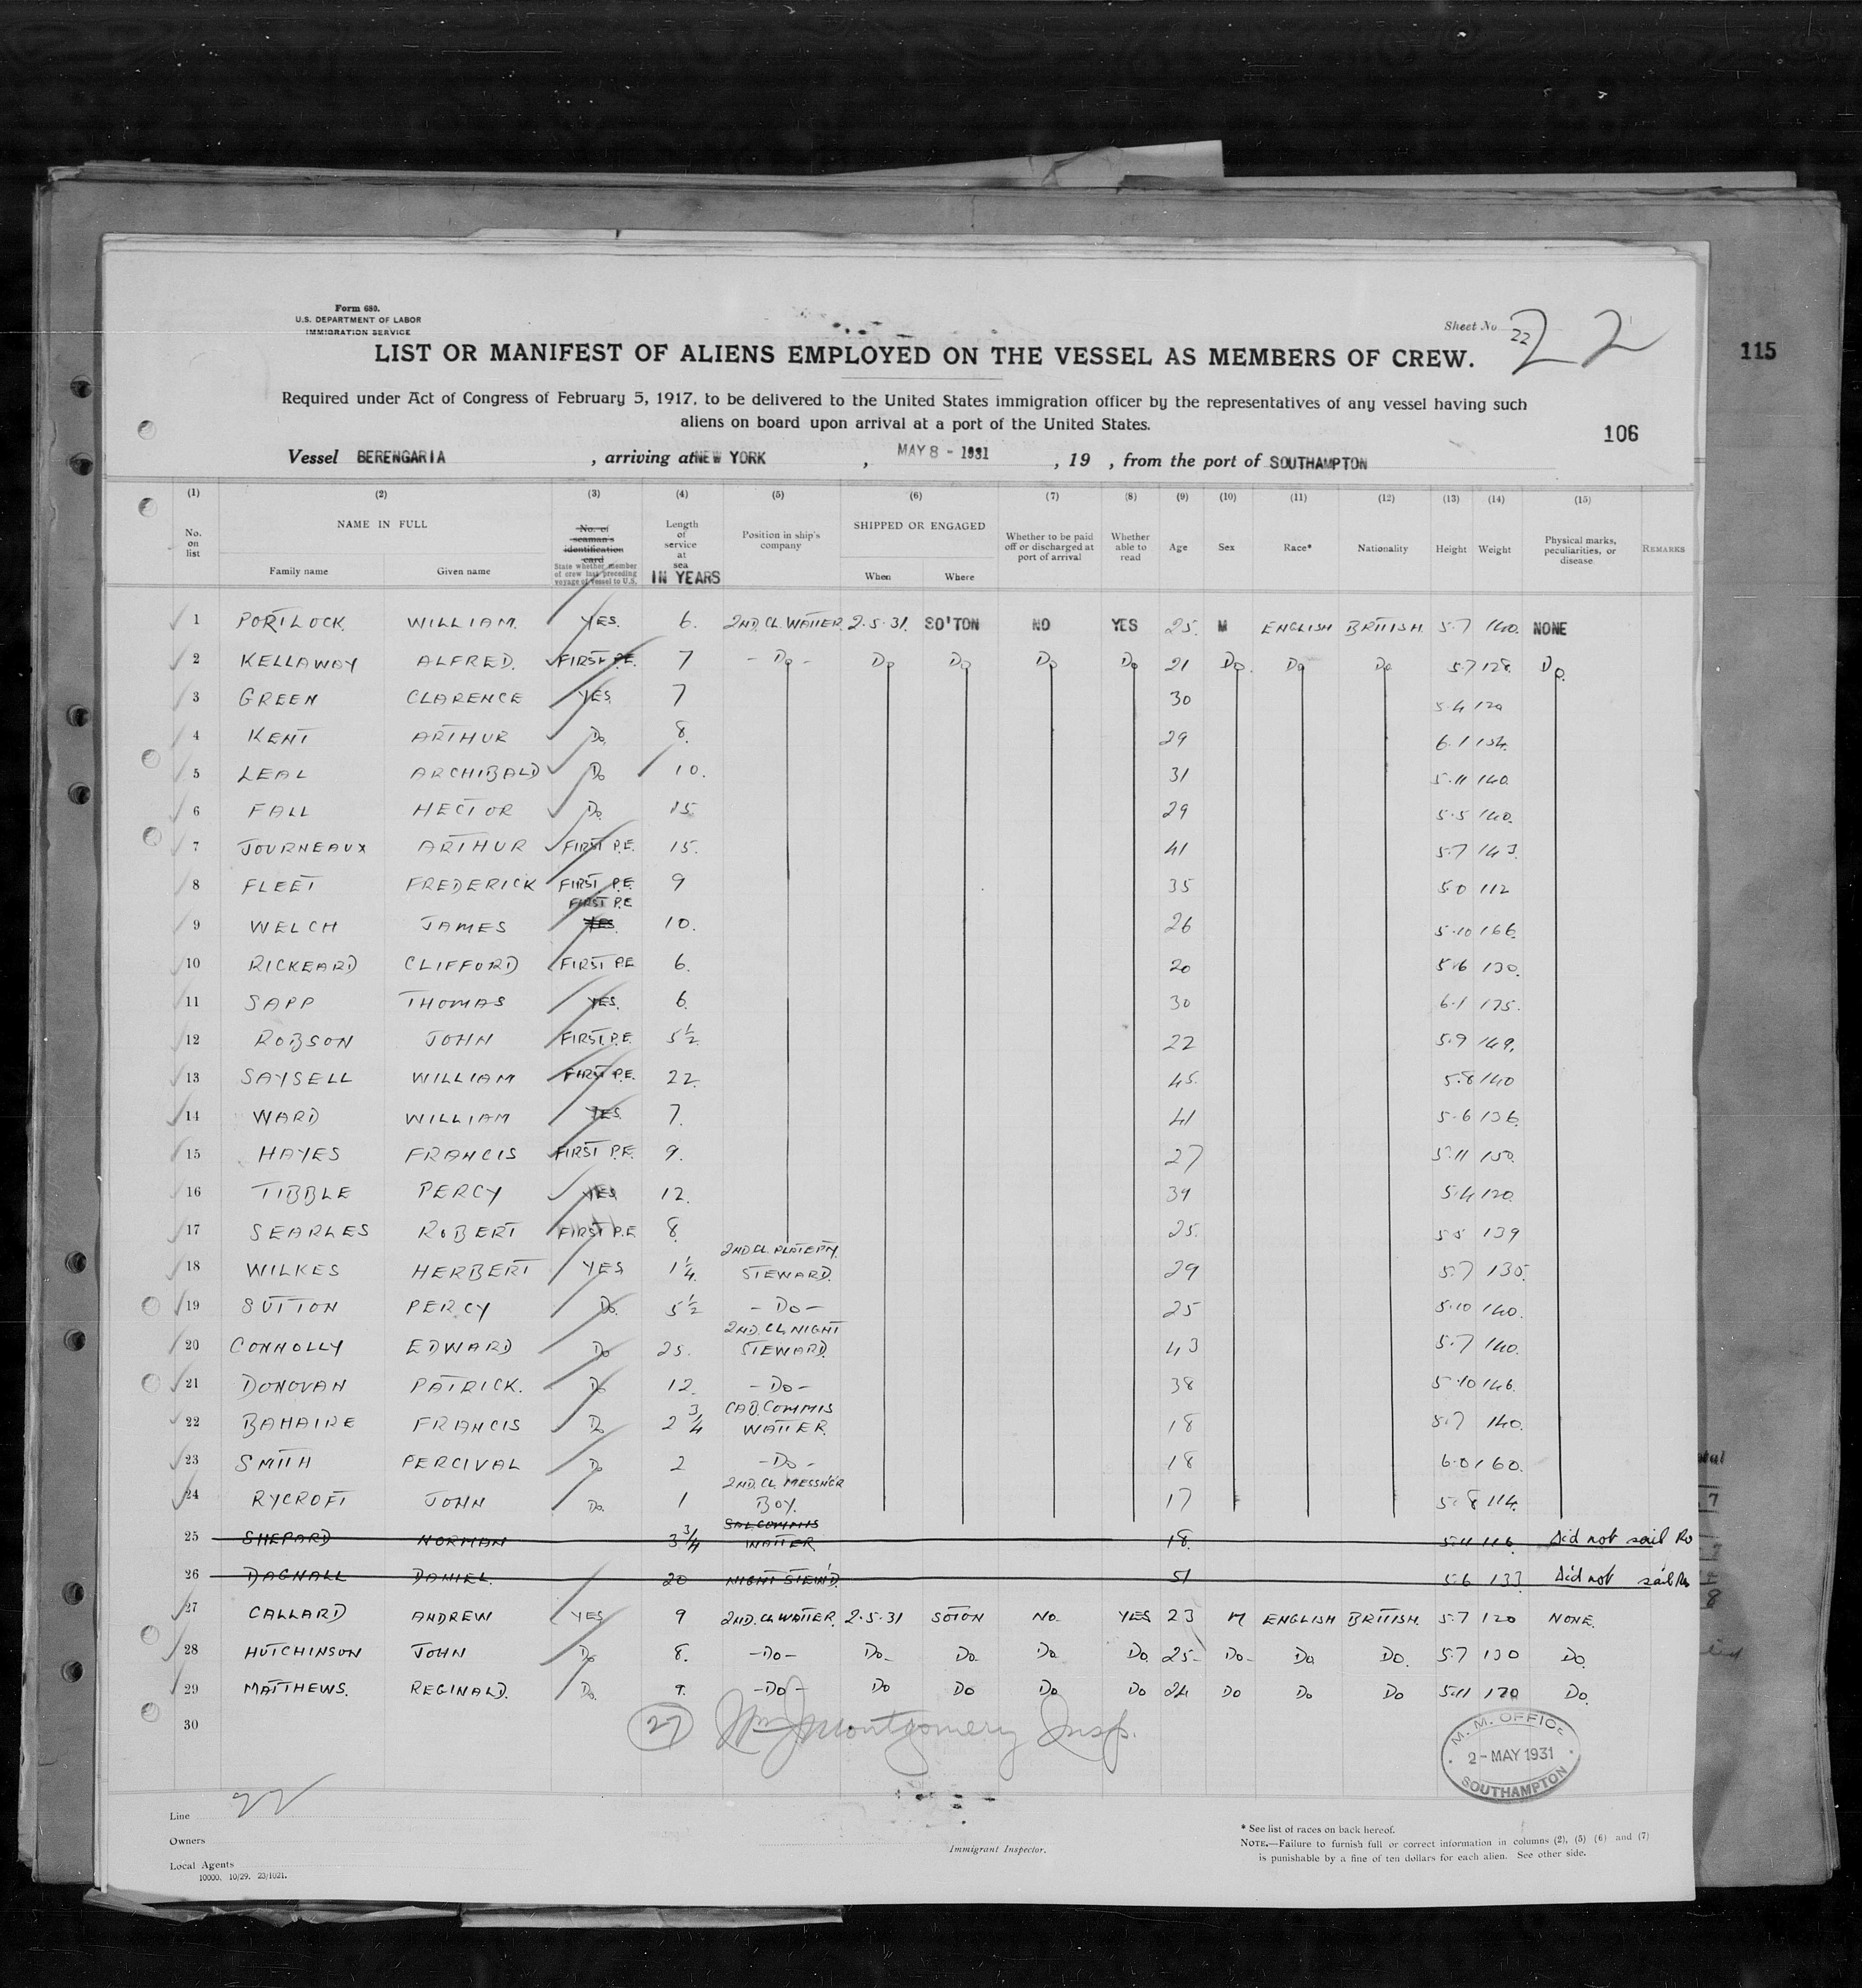 Form 680.
U.S. DEPARTMENT OF LABOR
IMMIGRATION SERVICE
Sheet No. 22 22
LIST OR MANIFEST OF ALIENS EMPLOYED ON THE VESSEL AS MEMBERS OF CREW.
115
Required under Act of Congress of February 5, 1917, to be delivered to the United States immigration officer by the representatives of any vessel having such
aliens on board upon arrival at a port of the United States.
106
Vessel BERENGARIA , arriving at NEW YORK , MAY 8 - 1931 , 19 , from the port of SOUTHAMPTON
(1) (2) (3) (4) (5) (6) (7) (8) (9) (10) (11) (12) (13) (14) (15)
No. on list NAME IN FULL Family name Given name No. of seaman's identification card State whether member of crew last preceding voyage of vessel to U.S. Length of service at sea IN YEARS Position in ship's company SHIPPED OR ENGAGED When Where Whether to be paid off or discharged at port of arrival Whether able to read Age Sex Race* Nationality Height Weight Physical marks, peculiarities, or disease REMARKS
1 PORTLOCK WILLIAM. YES. 6. 2ND. CL. WAITER. 2.5.31. SO'TON NO YES 25. M ENGLISH BRITISH. 5.7 140. NONE
2 KELLAWAY ALFRED. FIRST P.E. 7 - Do - Do Do Do Do 21 Do. Do Do 5.7 128. Do.
3 GREEN CLARENCE YES. 7 30 5.4 120
4 KENT ARTHUR Do. 8. 29 6.1 154.
5 LEAL ARCHIBALD Do 10. 31 5.11 140.
6 FALL HECTOR Do. 15. 29 5.5 140.
7 JOURNEAUX ARTHUR FIRST P.E. 15. 41 5.7 143.
8 FLEET FREDERICK FIRST P.E. 9 35 5.0 112
9 WELCH JAMES FIRST P.E YES. 10. 26 5.10 166.
10 RICKEARD CLIFFORD FIRST P.E 6. 20 5.6 130.
11 SAPP THOMAS YES. 6. 30 6.1 175.
12 ROBSON JOHN FIRST P.E. 5½ 22 5.9 149.
13 SAYSELL WILLIAM FIRST P.E. 22. 45. 5.8 140
14 WARD WILLIAM YES. 7. 41 5.6 136.
15 HAYES FRANCIS FIRST P.E. 9. 27 5.11 150.
16 TIBBLE PERCY YES 12. 39 5.4 120.
17 SEARLES ROBERT FIRST P.E 8. 25. 5.5 139
18 WILKES HERBERT YES 1¼ 2ND CL. PLATE PTY. STEWARD. 29 5.7 135.
19 SUTTON PERCY Do. 5½ - Do - 25 5.10 140.
20 CONNOLLY EDWARD Do 25. 2ND. CL NIGHT STEWARD. 43 5.7 140.
21 DONOVAN PATRICK. Do 12. - Do - 38 5.10 146.
22 BAHAIRE FRANCIS Do 2¾ CAB. COMMIS WAITER. 18 5.7 140.
23 SMITH PERCIVAL Do 2 - Do - 18 6.0 160.
24 RYCROFT JOHN Do. 1 2ND. CL. MESSNGR BOY. 17 5.8 114.
25 SHEPARD NORMAN 3¾ SAL COMMIS WAITER 18. 5.4 116. Did not sail
26 DAGNALL DANIEL. 20 NIGHT STEW'D. 51 5.6 133. Did not sail
27 CALLARD ANDREW YES 9 2ND. CL WAITER. 2.5.31 SOTON No. YES 23 M ENGLISH BRITISH. 5.7 120 NONE.
28 HUTCHINSON JOHN Do 8. - Do - Do. Do. Do Do. 25. Do. Do Do. 5.7 130 Do.
29 MATTHEWS. REGINALD. Do. 9. - Do - Do Do Do Do 24 Do Do Do 5.11 170 Do.
30
(27) Wm J Montgomery Insp.
M. M. OFFICE
2 - MAY 1931
SOUTHAMPTON
Line 22
Owners
Local Agents
10000. 10/29. 23/1021.
Immigrant Inspector.
* See list of races on back hereof.
NOTE.—Failure to furnish full or correct information in columns (2), (5) (6) and (7)
is punishable by a fine of ten dollars for each alien. See other side.